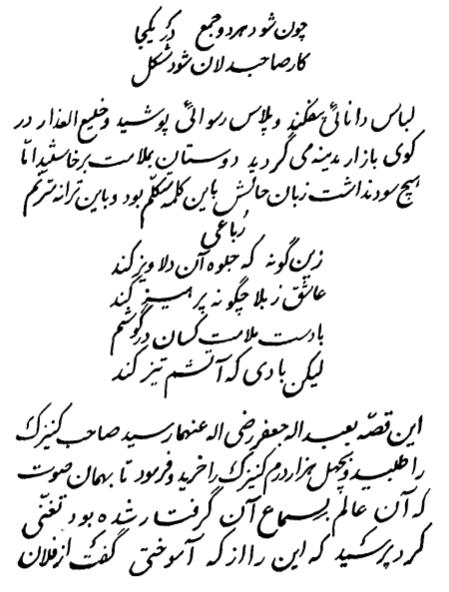 چون شود هر دو جمع در یکجا
کار صاحبدلان شود مشکل
لباس دانائی بیفکند و پلاس رسوائی پوشید و خلیع العذار در
کوی بازار مدینه می گردید دوستان بملامت برخاستند اما
هیچ سود نداشت زبان حالش باین کلمه متکلم بود و باین ترانه مترنم
رباعی
زین گونه که جلوه آن دلاویز کند
عاشق ز بلا چگونه پرهیز کند
بادست ملامت کسان در گوشم
لیکن بادی که آتشم تیز کند
این قصه بعبداله جعفر رضی اله عنهما رسید صاحب کنیزک
را طلبید و بچهل هزار درم کنیزک را خرید و فرمود تا بهمان صوت
که آن عالم بسماع آن گرفتار شده بود تغنّی
کرد پرسید که این را از که آموختی گفت از فلان